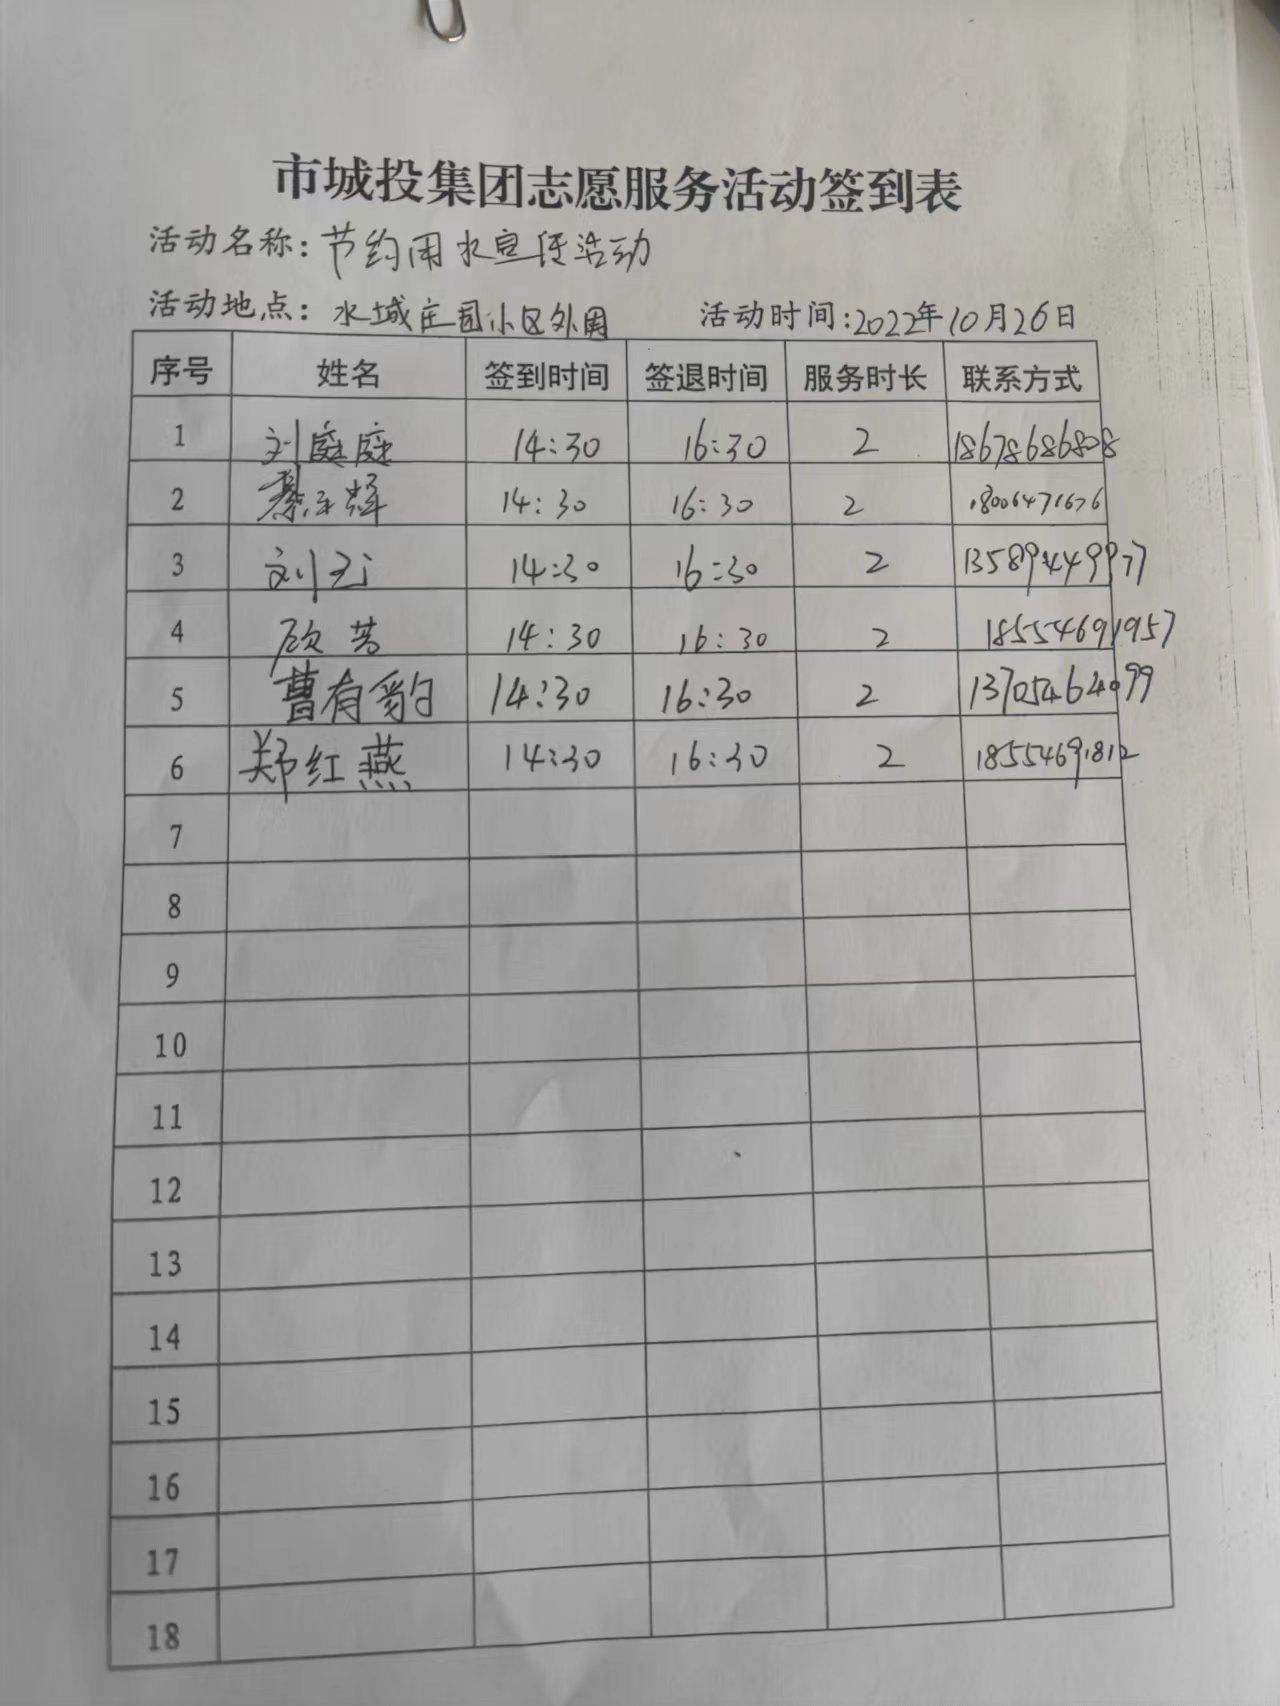 市城投集团志愿服务活动签到表
活动名称：节约用水宣传活动
活动地点：水城庄园小区外围 活动时间：2022年10月26日
序号 姓名 签到时间 签退时间 服务时长 联系方式
1 刘庭庭 14:30 16:30 2 18678686808
2 14:30 16:30 2 18006471676
3 刘云 14:30 16:30 2 13589449977
4 顾芳 14:30 16:30 2 18554691957
5 曹有豹 14:30 16:30 2 13705464099
6 郑红燕 14:30 16:30 2 18554691812
7
8
9
10
11
12
13
14
15
16
17
18